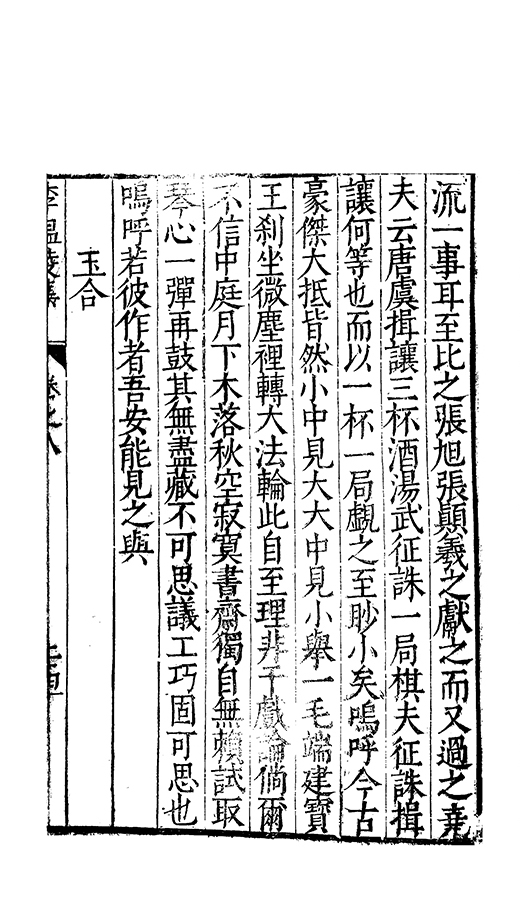 流一事耳至比之張旭張顛羲之獻之而又過之堯
夫云唐虞揖讓三杯酒湯武征誅一局棋夫征誅揖
讓何等也而以一杯一局覷之至眇小矣嗚呼今古
豪傑大抵皆然小中見大大中見小舉一毛端建寶
王刹坐微塵裡轉大法輪此自至理非干戲論倘爾
不信中庭月下木落秋空寂寞書齋獨自無賴試取
琴心一彈再鼓其無盡藏不可思議工巧固可思也
嗚呼若彼作者吾安能見之與
玉合
李溫陵集 卷之八